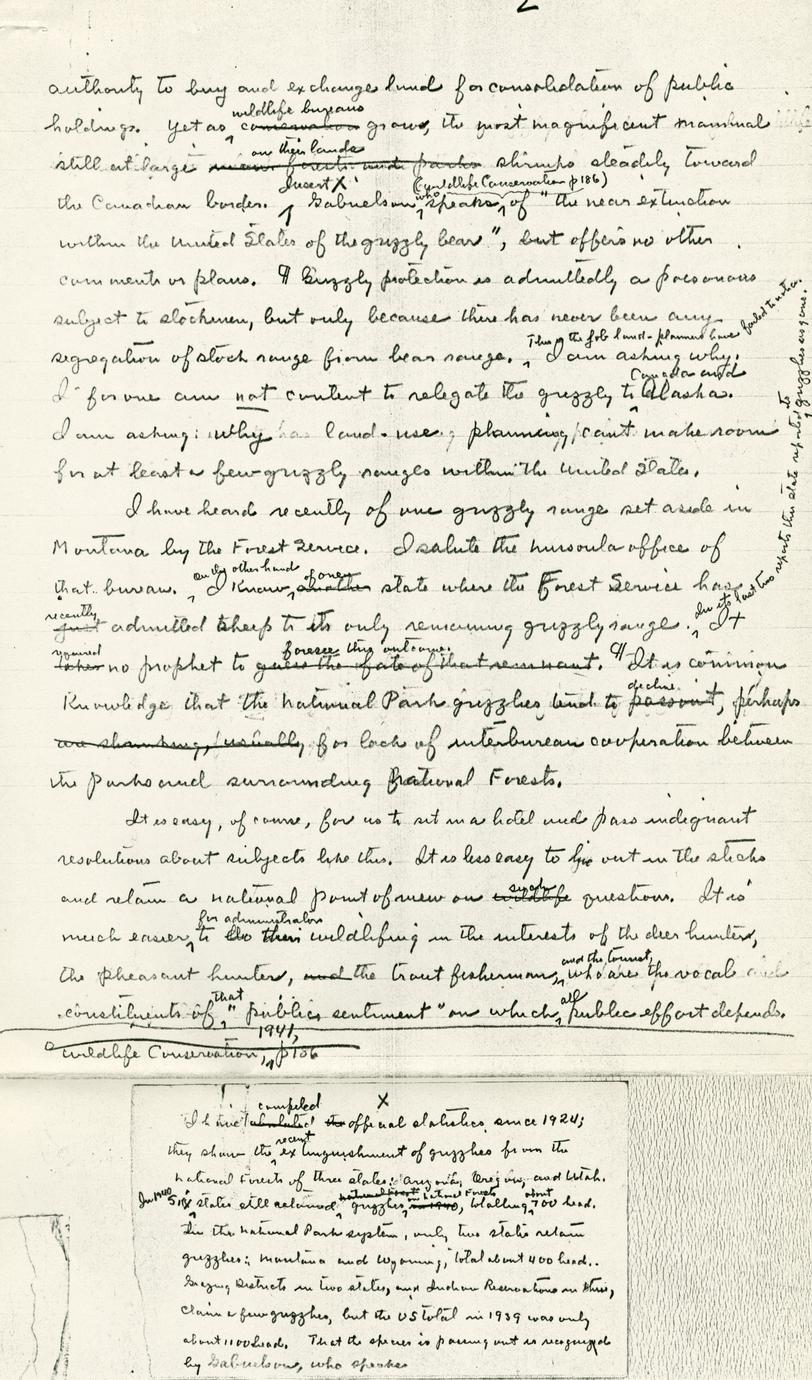 2
authority to buy and exchange land for consolidation of public
wildlife bureaus
holdings. Yet as conservation grows, the most magnificent mammal
on their lands
still at large in our forests and parks shrinks steadily toward
Insert X (Wildlife Conservation p186)
the Canadian border. Gabrielson who speaks of "the near extinction
within the United States of the grizzly bear", but offers no other
comments or plans. ¶ Grizzly protection is admittedly a poisonous
subject to stockmen, but only because there has never been any
segregation of stock range from bear range. This the job land-planners have failed to notice.
I am asking why.
Canada and
I for one am not content to relegate the grizzly to Alaska.
I am asking: why has land-use planning can't make room
for at least a few grizzly ranges within the United States.
I have heard recently of one grizzly range set aside in
Montana by the Forest Service. I salute the Missoula office of
on the other hand of one
that bureau. I know another state where the Forest Service has
recently
just admitted sheep to its only remaining grizzly range. In its last two reports this state reported to grizzlies as gone.
It
required
takes no prophet to guess the fate of that remnant. ¶ It is common
foresee the outcome.
decline
knowledge that the National Park grizzlies tend to pass out, perhaps
are shrinking, usually for lack of interbureau cooperation between
the parks and surrounding National Forests.
It is easy, of course, for us to sit in a hotel and pass indignant
resolutions about subjects like this. It is less easy to live out in the sticks
such
and retain a national point of view on wildlife questions. It is
for administrators
much easier, to do their wildlifing in the interests of the deer hunter,
and the tourist,
the pheasant hunter, and the trout fisherman, who are the vocal
that all
constituents of "public sentiment" on which public effort depends.
1941,
Wildlife Conservation, p186
X
compiled
I have tabulated the official statistics since 1924;
recent
they show the extinguishment of grizzlies from the
National Forests of three states: Arizona, Oregon, and Utah.
National Forest on National Forests about
In 1940 Six states still retained grizzlies in 1940, totalling 700 head.
In the National Park system, only two states retain
grizzlies: Montana and Wyoming; total about 400 head.
Grazing Districts in two states, and Indian Reservations in three,
claim a few grizzlies, but the US total in 1939 was only
about 1100 head. That the species is passing out is recognized
by Gabrielson, who speaks